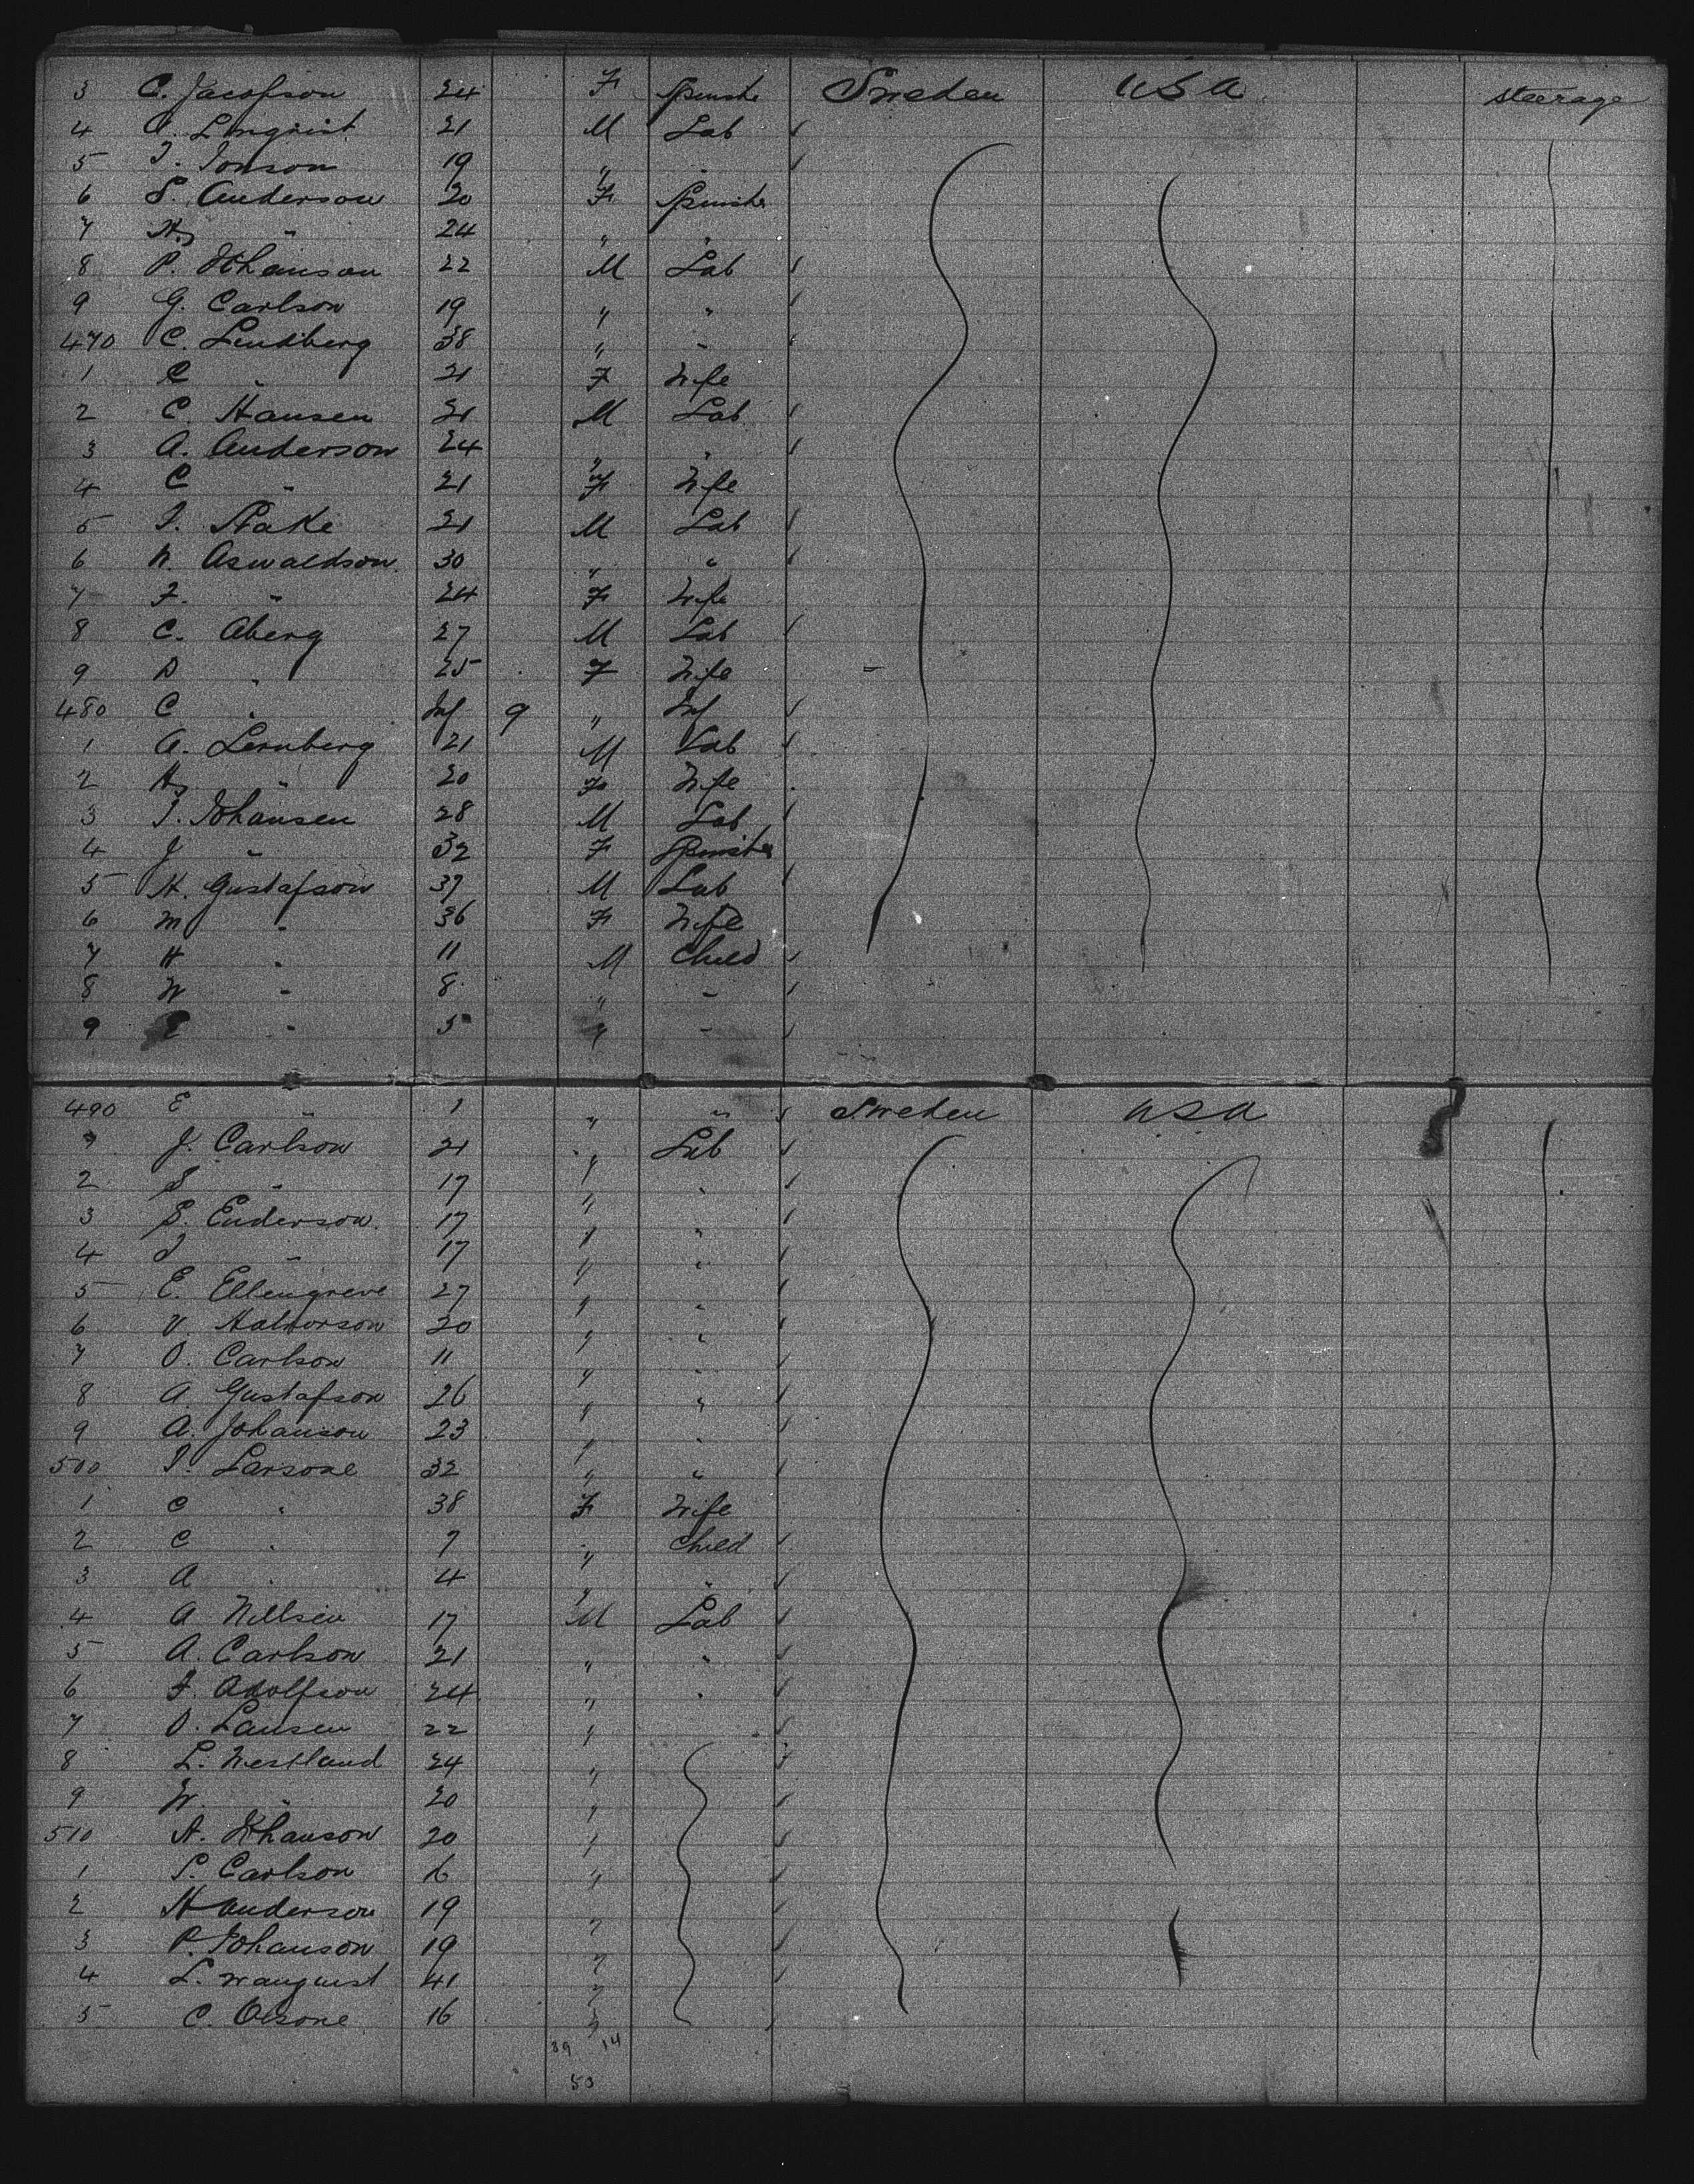 3 C. Jacobson 24 F Spinstr Sweden USA steerage
4 A. Linqvist 21 M Lab
5 J. Jonson 19 " "
6 S. Anderson 20 F Spinstr
7 " 24 " "
8 P. Johanson 22 M Lab
9 G. Carlson 19 " "
470 C. Lindberg 38 " "
1 C " 21 F Wife
2 C. Hansen 21 M Lab
3 A. Anderson 24 " "
4 C " 21 F Wife
5 J. Stake 21 M Lab
6 N. Aswaldson 30 " "
7 F. " 24 F Wife
8 C. Aberg 27 M Lab
9 D " 25 F Wife
480 C " Inf 9 " Inf
1 A. Lernberg 21 M Lab
2 " 20 F Wife
3 J. Johansen 28 M Lab
4 J " 32 F Spinster
5 H. Gustafson 37 M Lab
6 M " 36 F Wife
7 H " 11 M Child
8 W " 8 " "
9 E " 5 " "
490 E " 1 " " Sweden USA
J. Carlson 21 " Lab
2 S " 17 " "
3 S. Enderson 17 " "
4 J " 17 " "
5 E. Ellengreve 27 " "
6 V. Halvorson 20 " "
7 O. Carlson 11 " "
8 A. Gustafson 26 " "
9 A. Johanson 23 " "
500 J. Larsone 32 " "
1 C " 38 F Wife
2 C " 7 " Child
3 A " 4 " "
4 A Nillsen 17 M Lab
5 A. Carlson 21 " "
6 F. Adolfson 24 " "
7 O. Lausen 22 "
8 L. Westland 24 "
9 W. " 20 "
510 A. Johanson 20 "
1 S. Carlson 16 "
2 H Anderson 19 "
3 P. Johanson 19 "
4 L. Wanquist 41 "
5 C. Olsone 16 "
39 14
50